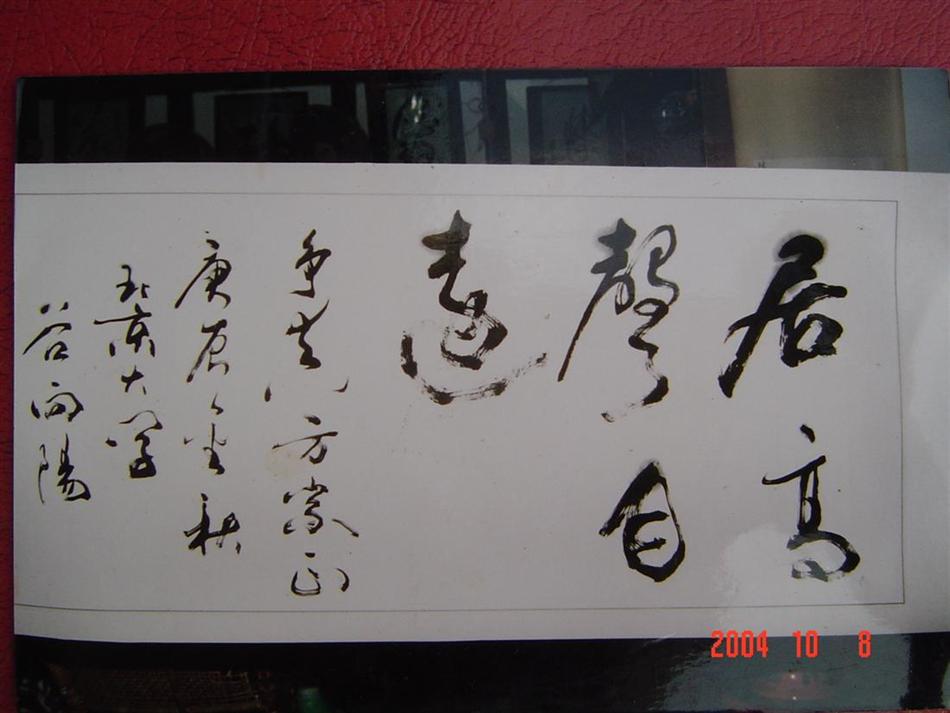 居高
聲自
遠
方崇正
庚辰金秋
北京大学
谷向陽
2004 10 8